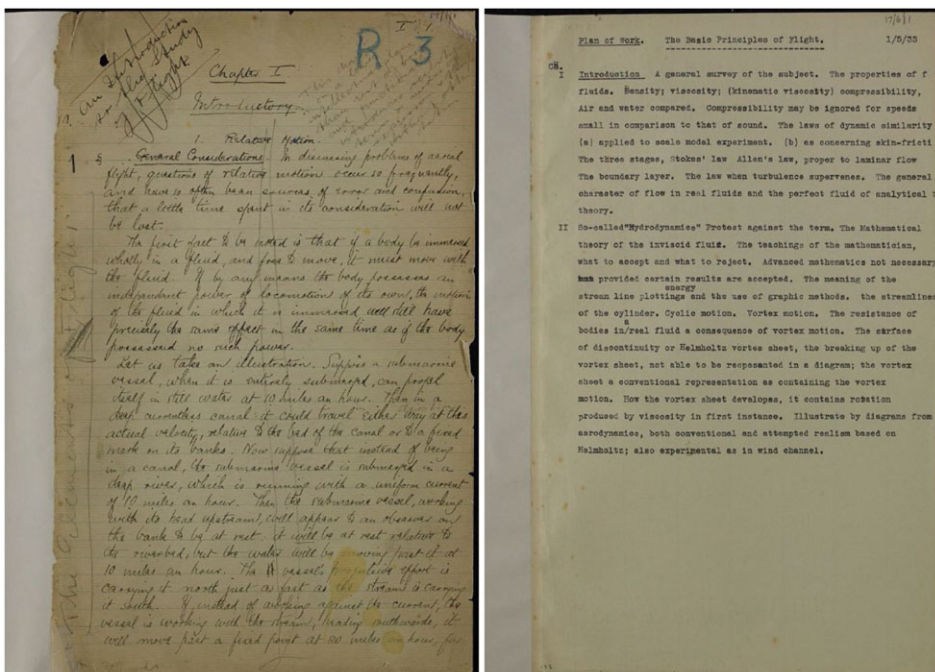 I
17/6/1
An Introduction
to the Study
of Flight
R 3
Chapter I
Introductory.
1. Relative Motion.
1 § General Considerations In discussing problems of aerial
flight, questions of relative motion occur so frequently,
and have so often been sources of error and confusion,
that a little time spent in its consideration will not
be lost.
The first fact to be noted is that if a body be immersed
wholly in a fluid, and free to move, it must move with
the fluid. If by any means the body possesses an
independent power of locomotion of its own, the motion
of the fluid in which it is immersed will still have
precisely the same effect in the same time as if the body
possessed no such power.
Let us take an illustration. Suppose a submarine
vessel, when it is entirely submerged, can propel
itself in still water at 10 miles an hour. Then in a
deep currentless canal it could travel either way at this
actual velocity, relative to the bed of the canal or to a fixed
mark on its banks. Now suppose that instead of being
in a canal, the submarine vessel is submerged in a
deep river, which is running with a uniform current
of 10 miles an hour. Then the submarine vessel, working
with its head upstream, will appear to an observer on
the bank to be at rest. it will be at rest relative to
the riverbed, but the water will be moving past it at
10 miles an hour. The vessel's propulsive effort is
carrying it north just as fast as the stream is carrying
it south. If, instead of working against the current, the
vessel is working with the stream, heading southwards, it
will move past a fixed point at 20 miles an hour, for
The Elements of Flight
17/6/1
Plan of Work. The Basic Principles of Flight. 1/5/33
CH.
I Introduction A general survey of the subject. The properties of f
fluids. Density; viscosity; (kinematic viscosity) compressibility,
Air and water compared. Compressibility may be ignored for speeds
small in comparison to that of sound. The laws of dynamic similarity
(a) applied to scale model experiment. (b) as concerning skin-fricti
The three stages, Stokes' law Allen's law, proper to laminar flow
The boundary layer. The law when turbulence supervenes. The general
character of flow in real fluids and the perfect fluid of analytical t
theory.
II So-called "Hydrodynamics" Protest against the term. The Mathematical
theory of the inviscid fluid. The teachings of the mathematician,
what to accept and what to reject. Advanced mathematics not necessary
provided certain results are accepted. The meaning of the
energy
stream line plottings and the use of graphic methods. the streamlines
of the cylinder. Cyclic motion. Vortex motion. The resistance of
a
bodies in/real fluid a consequence of vortex motion. The surface
of discontinuity or Helmholtz vortex sheet, the breaking up of the
vortex sheet, not able to be represented in a diagram; the vortex
sheet a conventional representation as containing the vortex
motion. How the vortex sheet developes, it contains rotation
produced by viscosity in first instance. Illustrate by diagrams from
aerodynamics, both conventional and attempted realism based on
Helmholtz; also experimental as in wind channel.